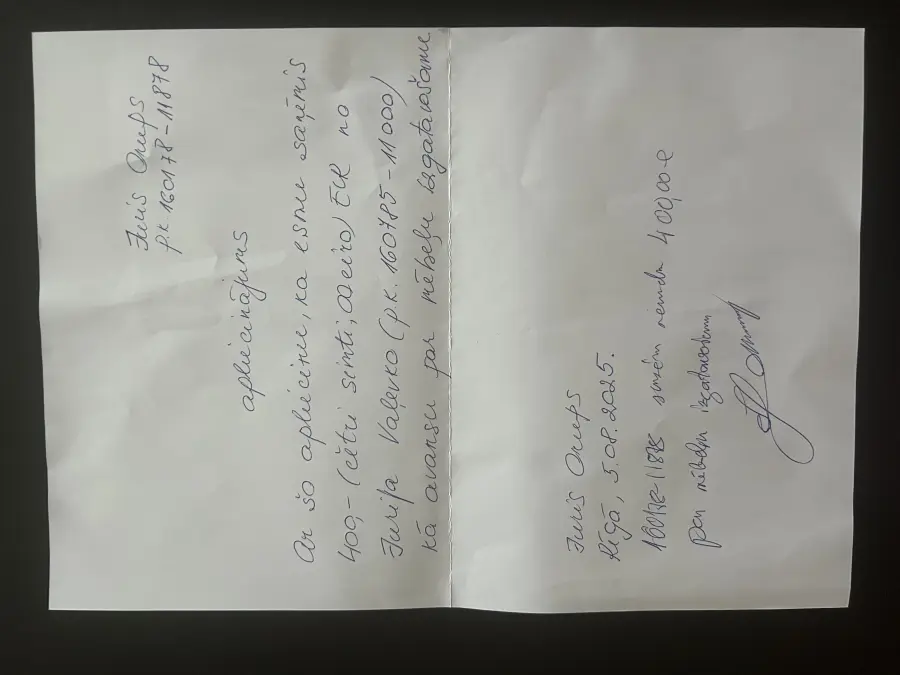 Juris Onups
p.k 160178-11878
apliecinājums
Ar šo apliecinu, ka esmu saņēmis
400,- (četri simti, 00 eiro) EUR no
Jurija Vaļevko (p.k. 160785-11000)
kā avansu par mēbeļu izgatavošanu
Juris Onups
Rīgā, 5.08.2025.
160178-11878 saņēmu naudu 400,00 €
par mēbeļu izgatavošanu